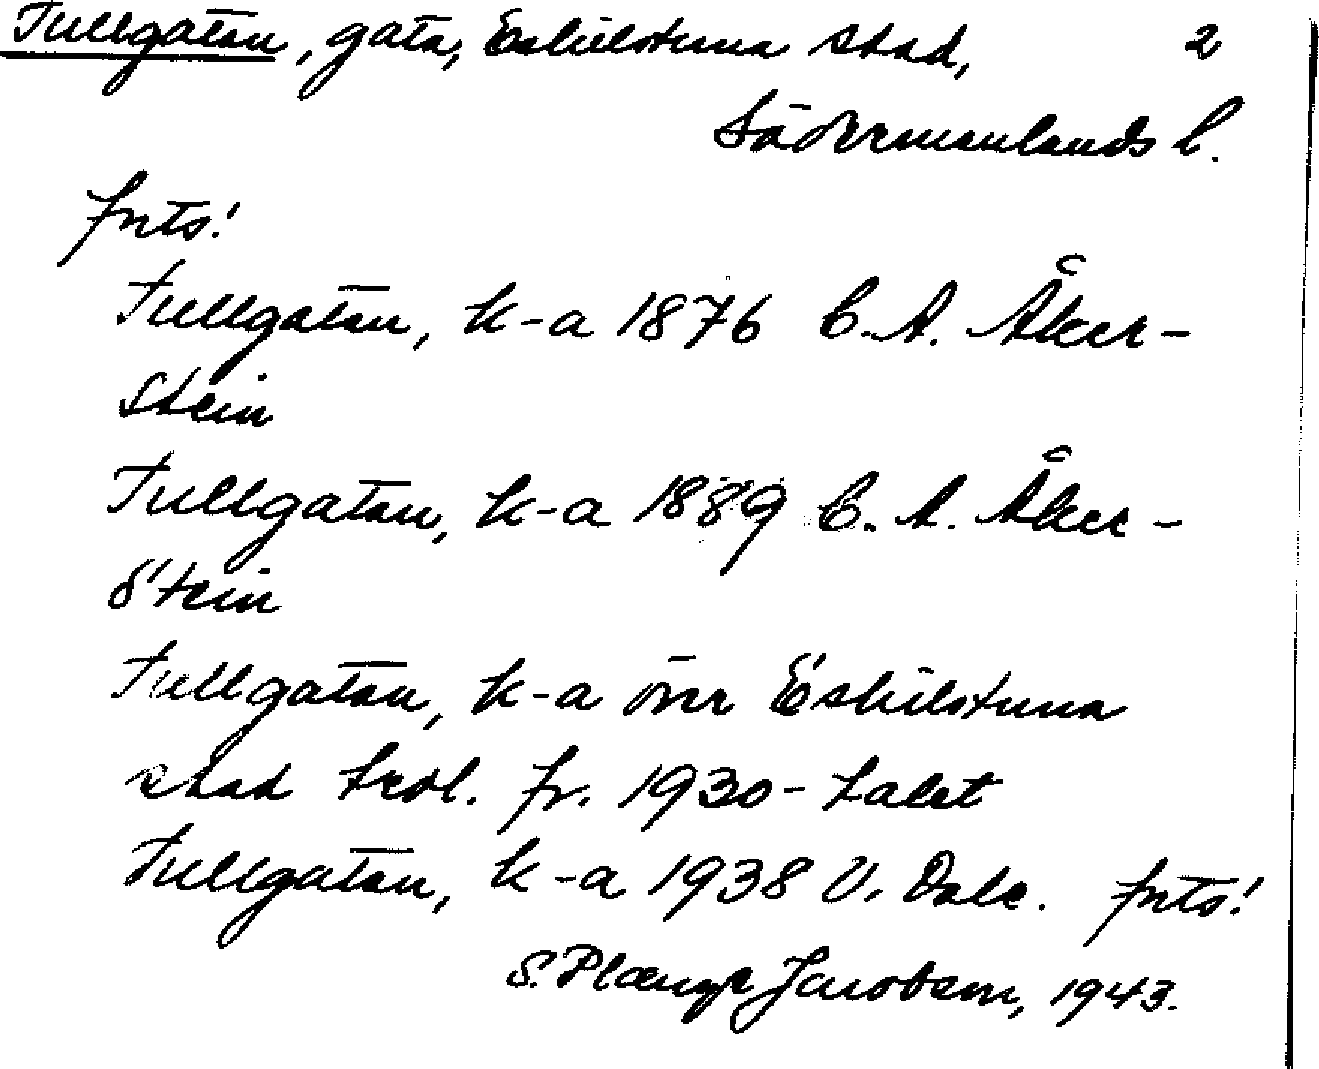 Tullgatan, gata, Eskilstuna stad, 2
Södermanlands l.
frts!
Tullgatan, k-a 1876 C. A. Åker-
stein
Tullgatan, k-a 1889 C. A. Åker-
stein
Tullgatan, k-a över Eskilstuna
stad trol. fr. 1930-talet
Tullgatan, k-a 1938 V. Dale. frts!
S. Jacobson, 1943.